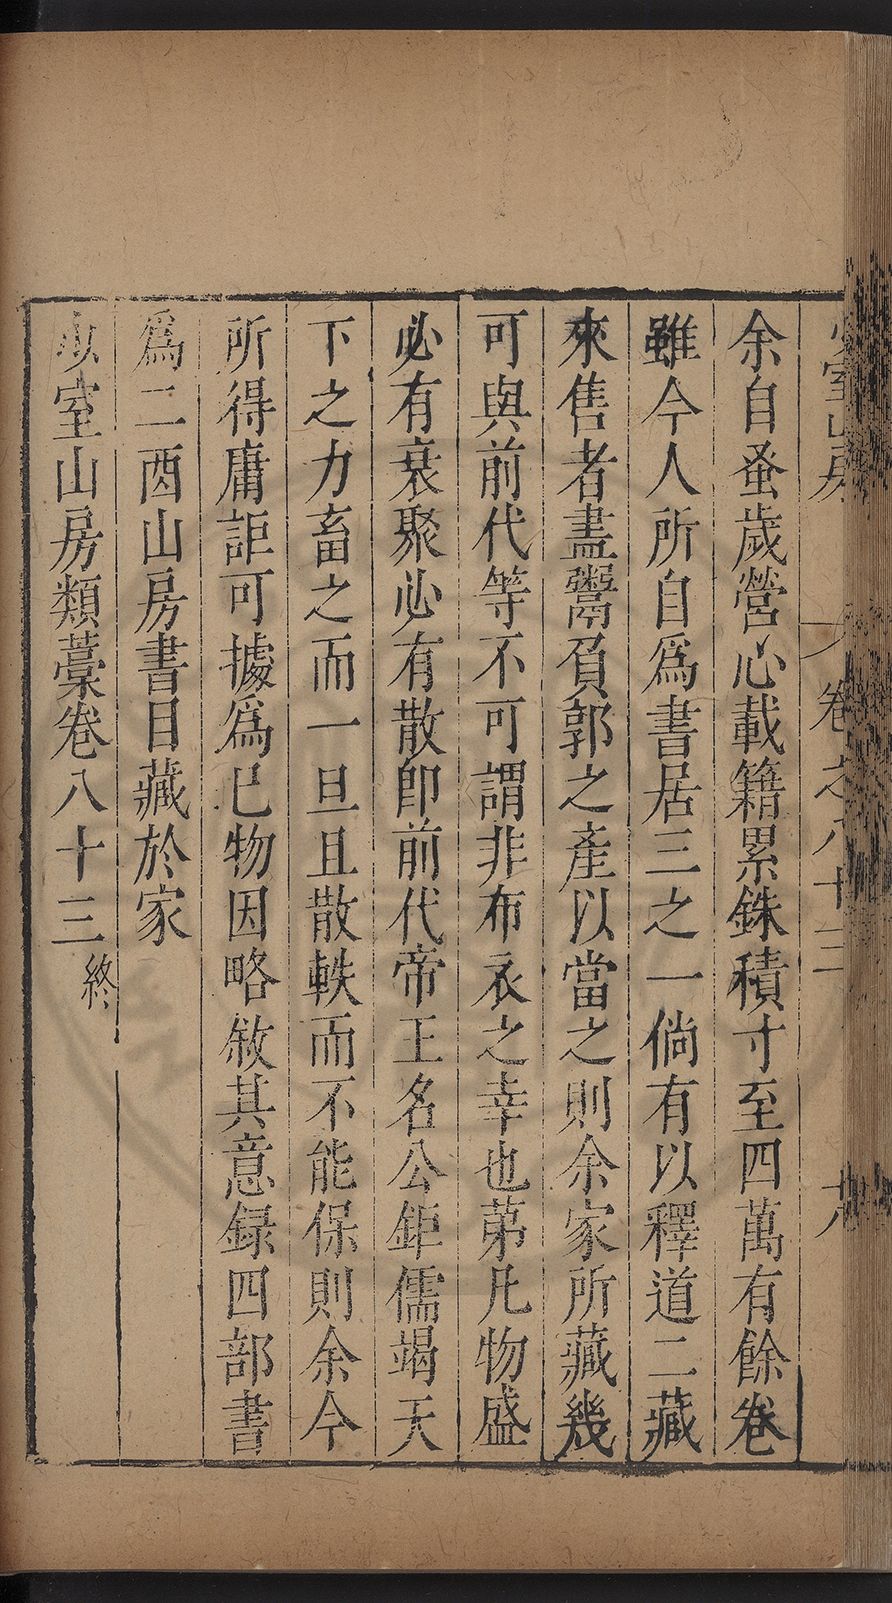 余自蚤歲營心載籍累銖積寸至四萬有餘卷
雖今人所自爲書居三之一倘有以釋道二藏
來售者盡鬻負郭之產以當之則余家所藏幾
可與前代等不可謂非布衣之幸也苐凡物盛
必有衰聚必有散卽前代帝王名公鉅儒竭天
下之力畜之而一旦且散軼而不能保則余今
所得庸詎可據爲已物因略敘其意録四部書
爲二酉山房書目藏於家
少室山房類藁卷八十三終
室山房
卷之八十三